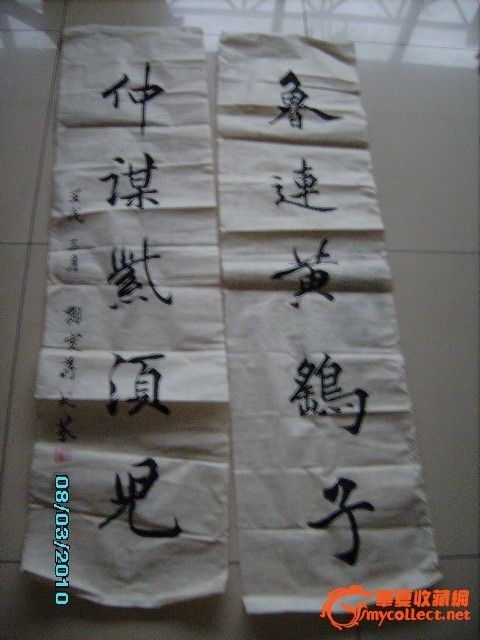 魯連黃鷂子
仲謀紫湏兒
壬戌
08/03/2010
華夏收藏網
mycollect.net